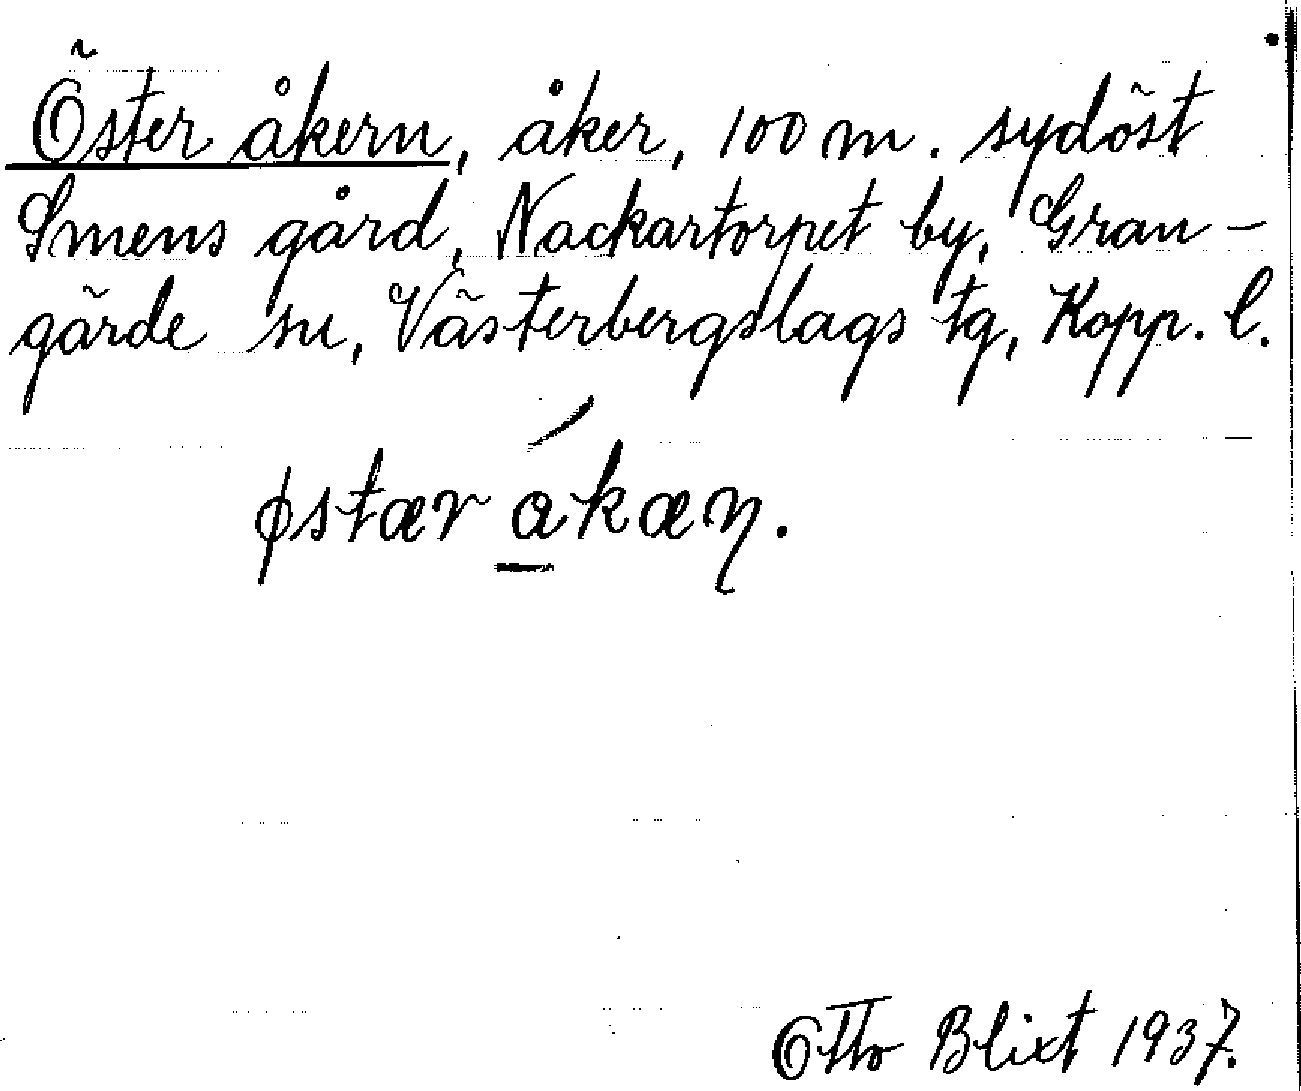 Öster åkern, åker, 100 m. sydöst
Smens gård, Nackartorpet by, Gran-
gärde sn, Västerbergslags tg, Kopp. l.
østær á̲kæn.
Otto Blixt 1937.